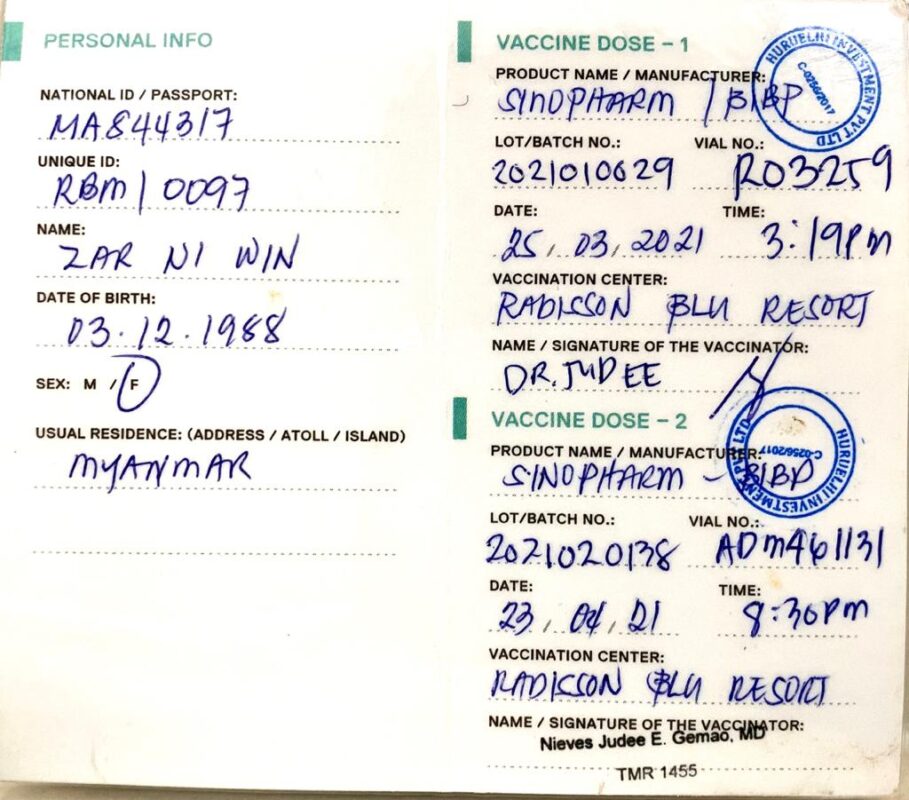 PERSONAL INFO
NATIONAL ID / PASSPORT:
MA844317
UNIQUE ID:
RBM/0097
NAME:
ZAR NI WIN
DATE OF BIRTH:
03.12.1988
SEX: M / F
USUAL RESIDENCE: (ADDRESS / ATOLL / ISLAND)
MYANMAR
VACCINE DOSE – 1
PRODUCT NAME / MANUFACTURER:
SINOPHARM / BIBP
HURUELHI INVESTMENT PVT LTD
C-0256/2017
LOT/BATCH NO.: VIAL NO.:
2021010029 R03259
DATE: TIME:
25, 03, 2021 3:19pm
VACCINATION CENTER:
RADISSON BLU RESORT
NAME / SIGNATURE OF THE VACCINATOR:
DR. JUDEE
VACCINE DOSE – 2
PRODUCT NAME / MANUFACTURER:
SINOPHARM - BIBP
HURUELHI INVESTMENT PVT LTD
C-0256/2017
LOT/BATCH NO.: VIAL NO.:
2021020138 ADM461131
DATE: TIME:
23, 04, 21 8:30pm
VACCINATION CENTER:
RADISSON BLU RESORT
NAME / SIGNATURE OF THE VACCINATOR:
Nieves Judee E. Gemao, MD
TMR 1455